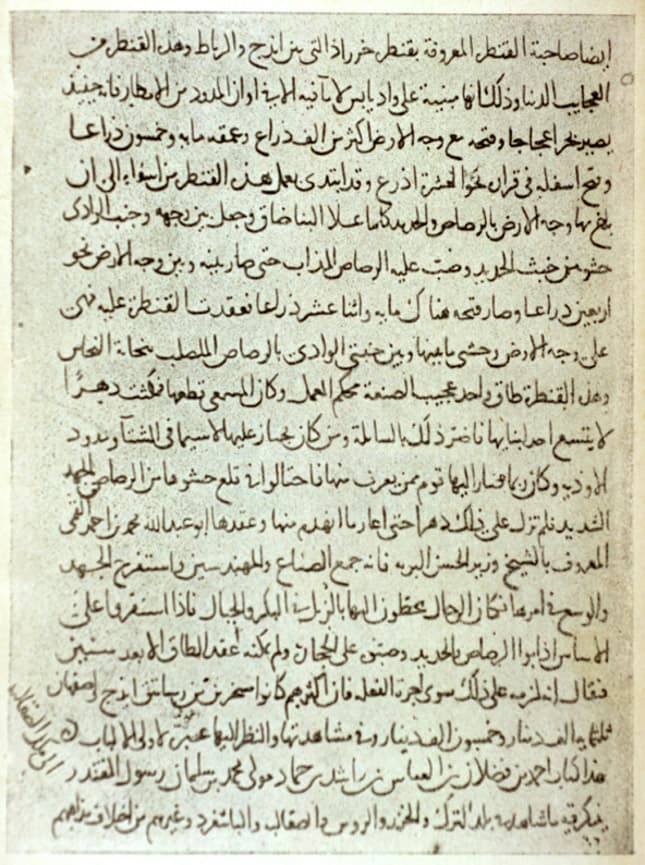 ايضا صاحبة القنطره المعروفة بقنطره خرراذ التى بين ايذج والرباط وهذه القنطره من
العجايب الدنيا وذلك انها مبنية على واد يابس لا ما فيه الا فى اوان المدود من الامطار فانه حينيذ
يصير بحرا عجاجا وفتحه مع وجه الارض اكثر من الف ذراع وعمقه مايه وخمسون ذراعا
وفتح اسفله فى قراره نحو العشره اذرع وقد ابتدى بعمل هذه القنطره من اسفلها الى ان
بلغ بها وجه الارض بالرصاص والحديد كلما علا البنا ضاق وجعل بين وجهه وجنب الوادى
حشو من خبث الحديد وصب عليه الرصاص المذاب حتى صار بينه وبين وجه الارض نحو
اربعين ذراعا وصار فتحه هناك مايه واثنا عشر ذراعا فعقدت القنطرة عليه فهى
على وجه الارض وحشى ما بينها وبين جنبتى الوادى بالرصاص المصلب بنحاتة النحاس
وهذه القنطرة طاق واحد عجيب الصنعة محكم العمل وكان المسمعى قطعها فمكثت دهرًا
لا يتسع احد لبنايها فاضر ذلك بالسابلة ومن كان يجتاز عليها لا سيما فى الشتا ومدود
الاوديه وكان ربما صار اليها قوم ممن يعرب منها فاحتالوا فى قلع حشوها من الرصاص بالجهد
الشديد فلم تزل على ذلك دهرا حتى اعاد ما انهدم منها وعقدها ابو عبد الله محمد بن احمد القمى
المعروف بالشيخ وزير الحسن البويه فانه جمع الصناع والمهندسين واستفرغ الجهد
والوسع فى امرها فكان الرجال يحطون اليها بالزبل فى البكر والحبال فاذا استقروا على
الاساس اذابوا الرصاص بالحديد وصبوه على الحجاره ولم يمكنه عقد الطاق الا بعد سنين
فيقال انه لزمه على ذلك سوى اجرة الفعله فان اكثرهم كانوا مسخرين من رساتيق ايذج واصفهان
ثلثمايه الف دينار وخمسون الف دينار وفى مشاهدتها والنظر اليها عبرة لاولى الالباب
هذا كتاب احمد بن فضلان بن العباس بن راشد بن حماد مولى محمد بن سلمان رسول المقتدر
الى ملك الصقالبه
يذكر فيه ما شاهد فى بلد الترك والخزر والروس والصقالبه والباشغرد وغيرهم من اختلاف مذاهبهم